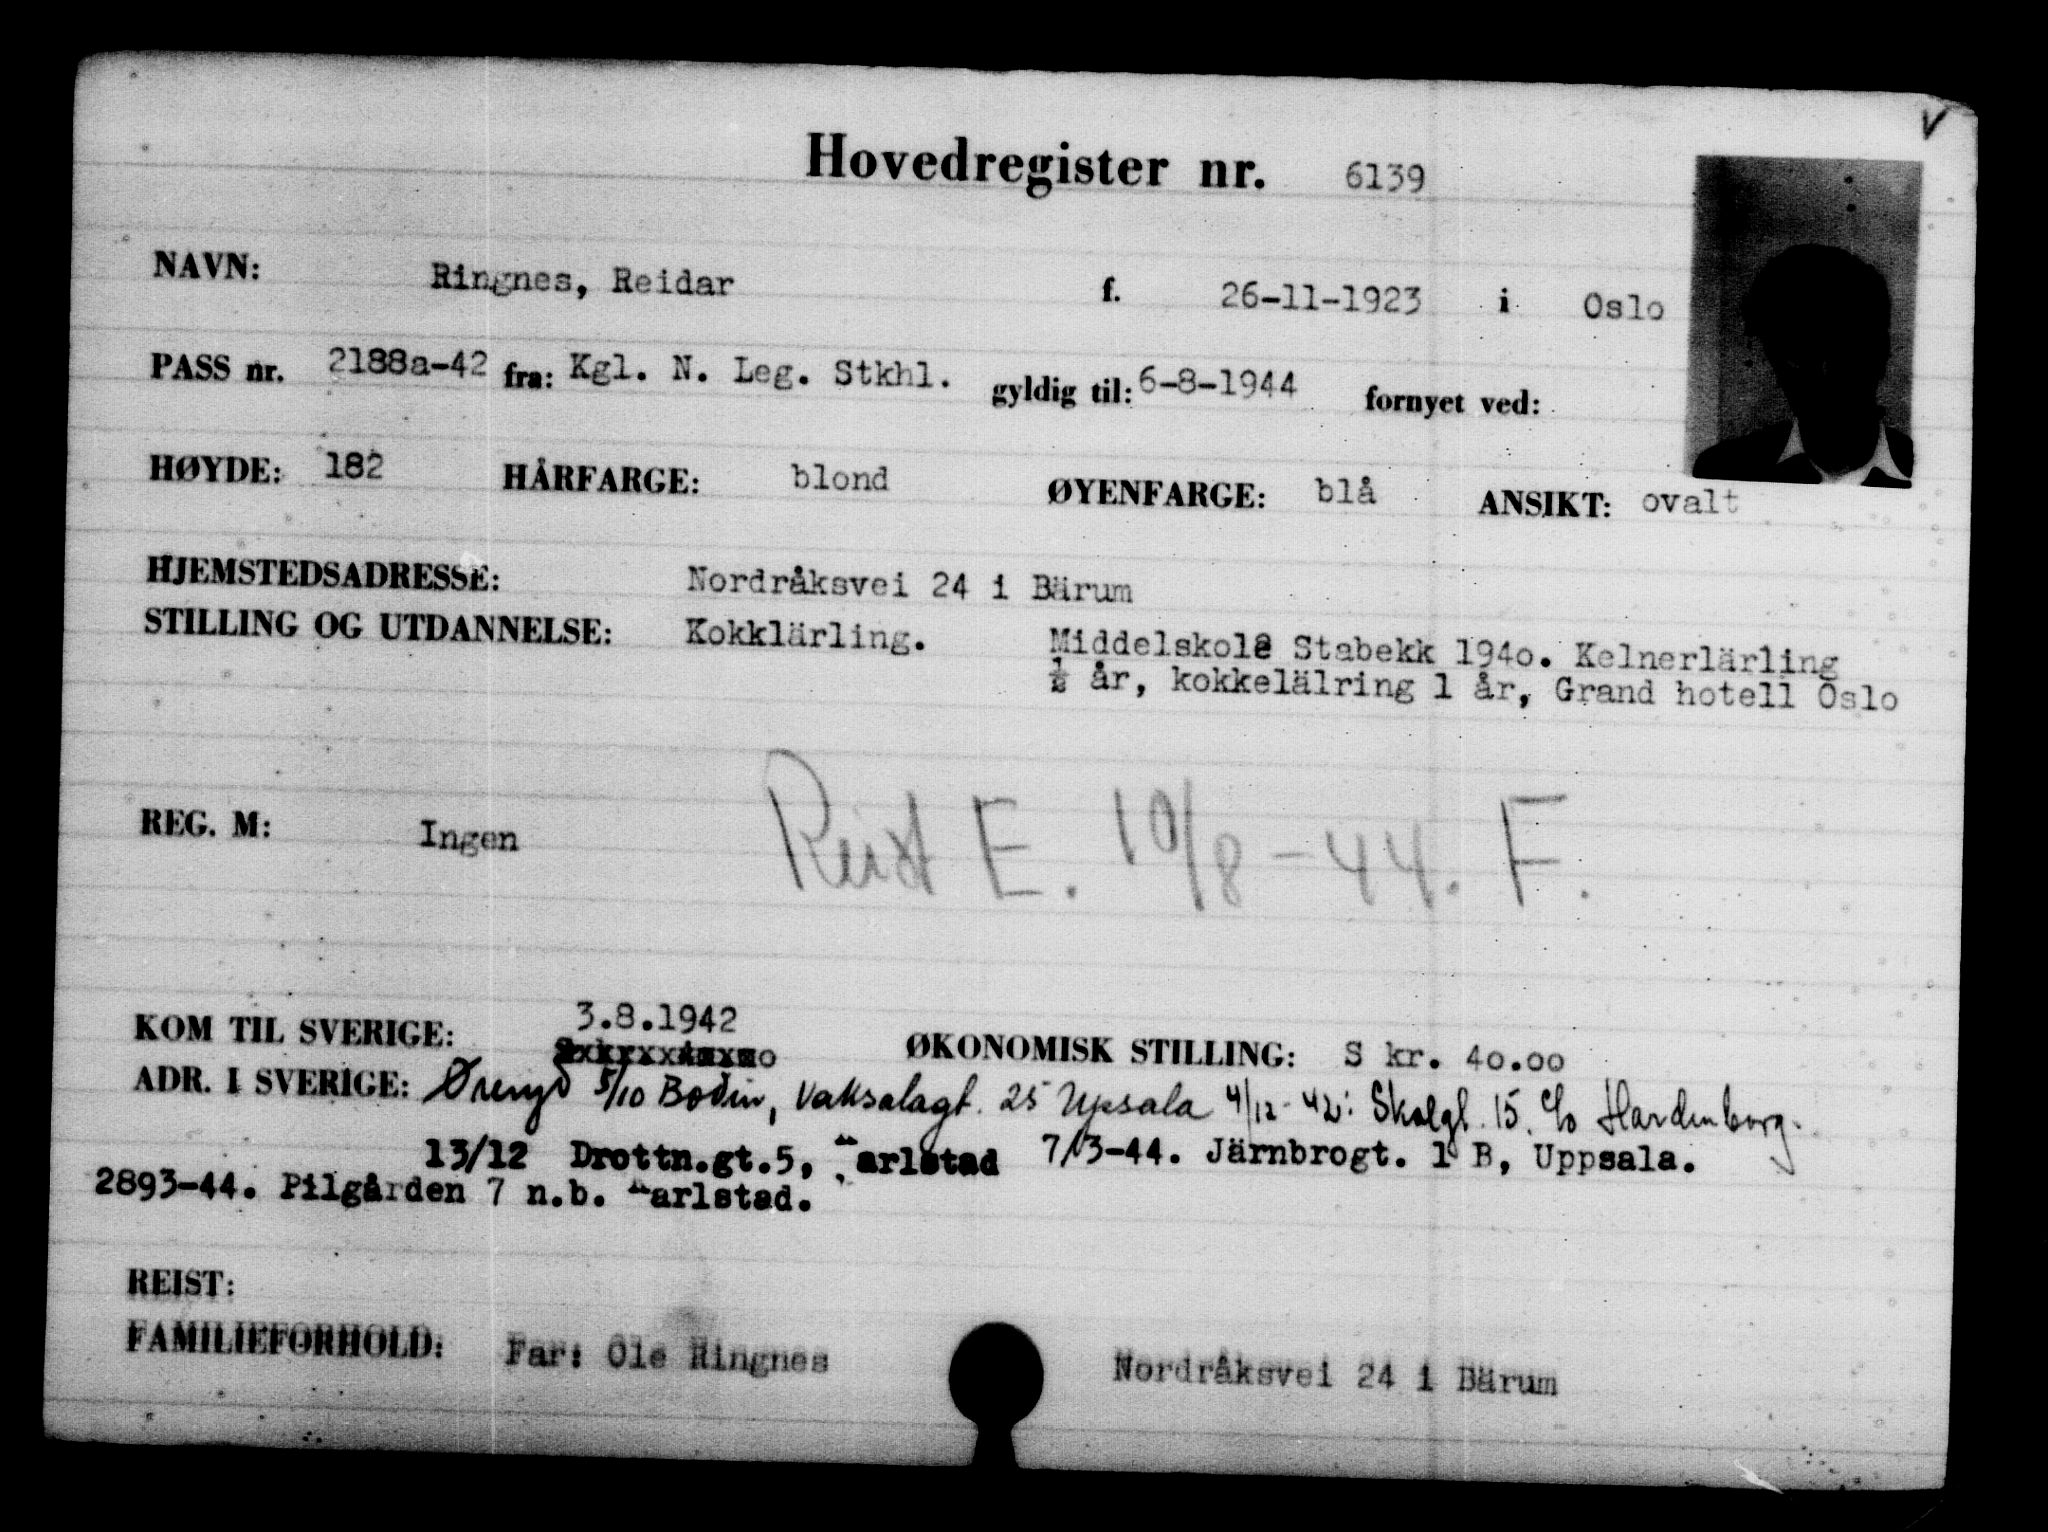 V
Hovedregister nr. 6139
NAVN: Ringnes, Reidar f. 26-11-1923 i Oslo
PASS nr. 2188a-42 fra: Kgl. N. Leg. Stkhl. gyldig til: 6-8-1944 fornyet ved:
HØYDE: 182 HÅRFARGE: blond ØYENFARGE: blå ANSIKT: ovalt
HJEMSTEDSADRESSE: Nordråksvei 24 i Bärum
STILLING OG UTDANNELSE: Kokklärling. Middelskole Stabekk 194o. Kelnerlärling
½ år, kokkelälring 1 år, Grand hotell Oslo
REG. M: Ingen Reist E. 10/8-44. F.
KOM TIL SVERIGE: 3.8.1942 ØKONOMISK STILLING: S kr. 4o.oo
ADR. I SVERIGE: Øreryd 5/10 Bodin, Vaksalagt. 25 Upsala 4/12-42: Skolgt. 15. c/o Hardenborg.
13/12 Drottn.gt.5, arlstad 7/3-44. Järnbrogt. 1 B, Uppsala.
2893-44. Pilgården 7 n.b. arlstad.
REIST:
FAMILIEFORHOLD: Far: Ole Ringnes Nordråksvei 24 i Bärum